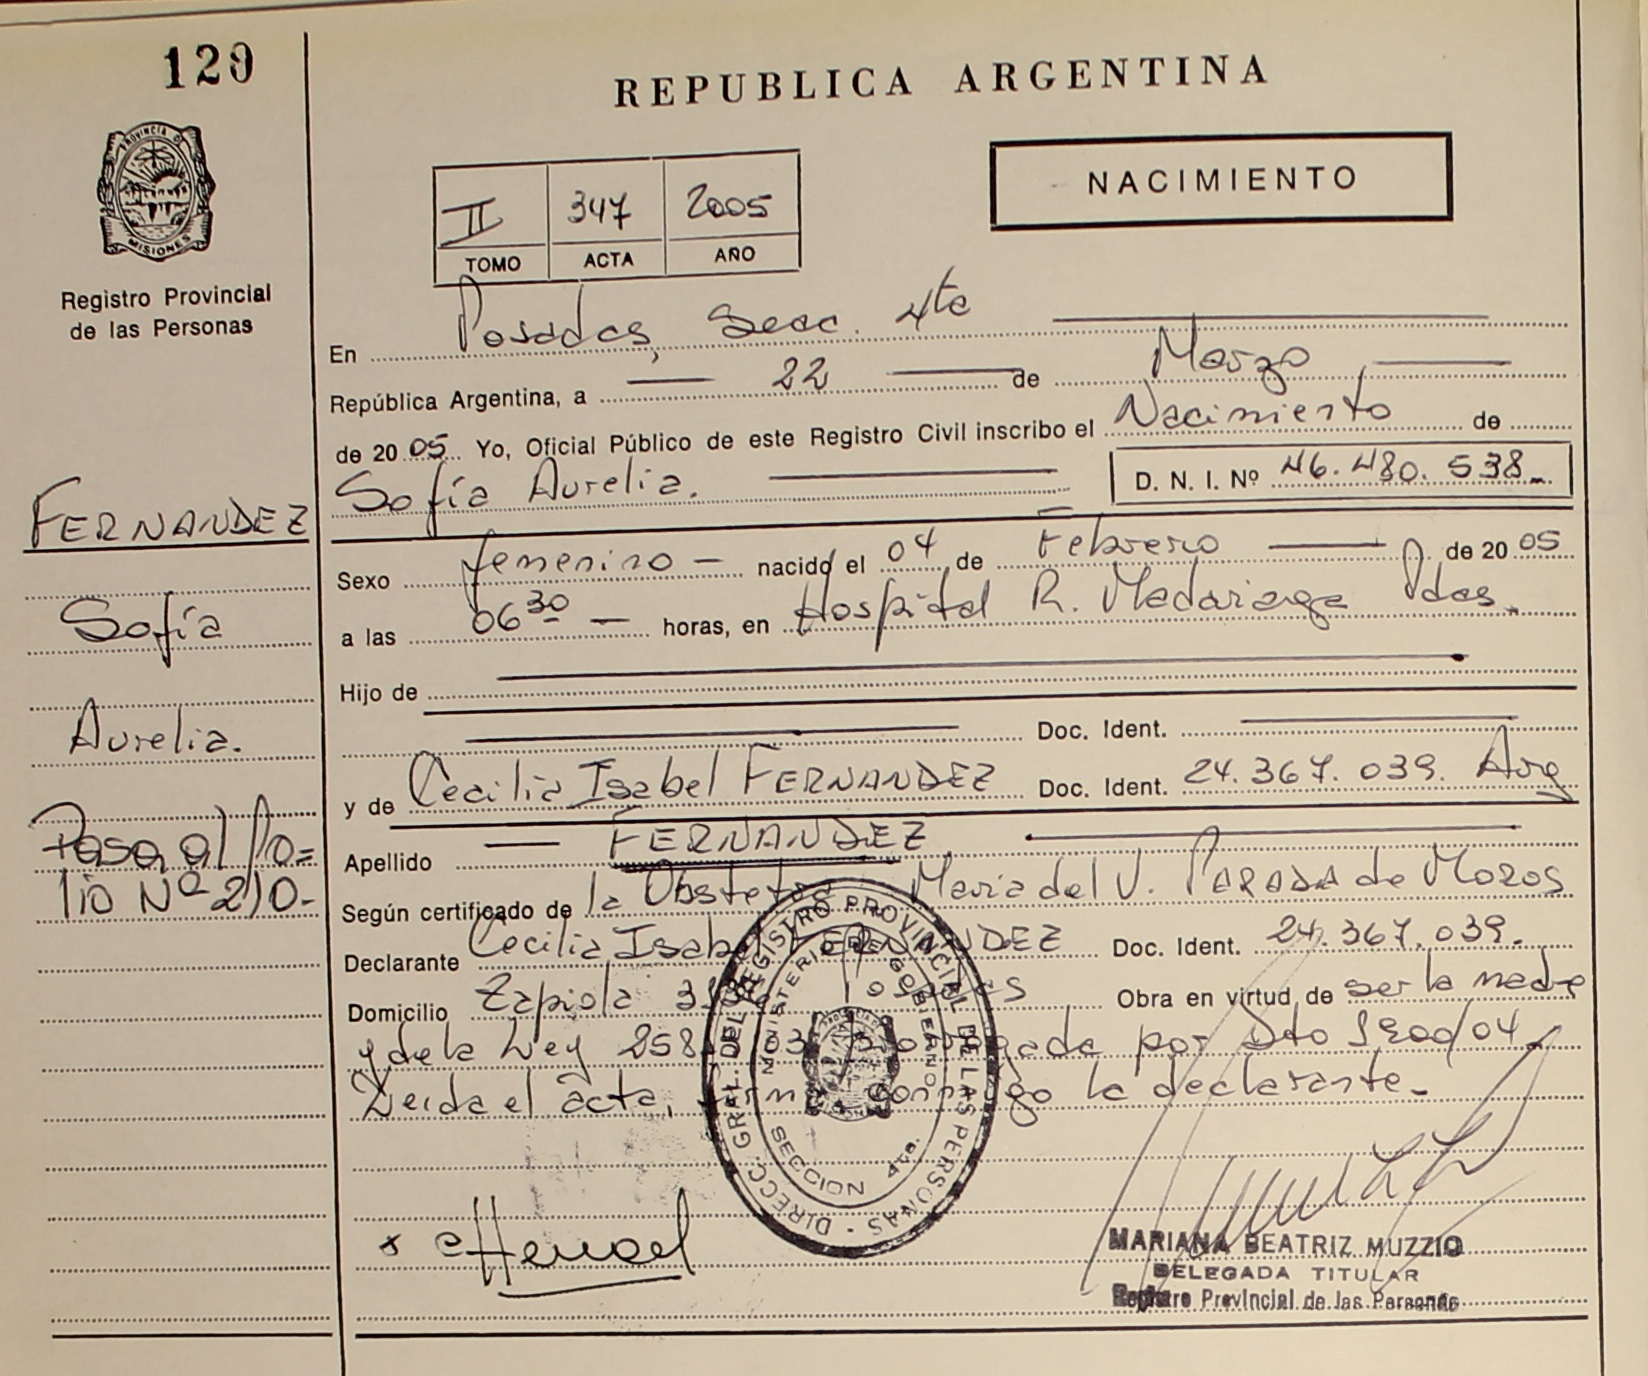 129
REPUBLICA ARGENTINA
PROVINCIA DE
MISIONES
Registro Provincial
de las Personas
NACIMIENTO
II 347 2005
TOMO ACTA AÑO
En Posadas, Secc. 4ta
República Argentina, a 22 de Marzo
de 2005 Yo, Oficial Público de este Registro Civil inscribo el Nacimiento de
Sofía Aurelia. D. N. I. Nº 46.480.538
Sexo femenino - nacido el 04 de Febrero de 2005
a las 06 30 - horas, en Hospital R. Madariaga Pdas.
Hijo de
Doc. Ident.
y de Cecilia Isabel FERNANDEZ Doc. Ident. 24.367.039. Arg
Apellido FERNANDEZ
Según certificado de la Maria del V. PARADA de Mozos
Declarante Cecilia Isabel FERNANDEZ Doc. Ident. 24.367.039.
Domicilio Zapiola Posadas Obra en virtud de ser la madre
y de la Ley prorrogada por Dto 1900/04.
Leida el acta, firma conmigo la declarante.
FERNANDEZ
Sofía
Aurelia.
Pasa al Fo=
lio Nº 210-
DIRECC. GRAL. DEL REGISTRO PROVINCIAL DE LAS PERSONAS
MINISTERIO DE GOBIERNO
SECCION 4ta.
MARIANA BEATRIZ MUZZIO
DELEGADA TITULAR
Registro Provincial de las Personas